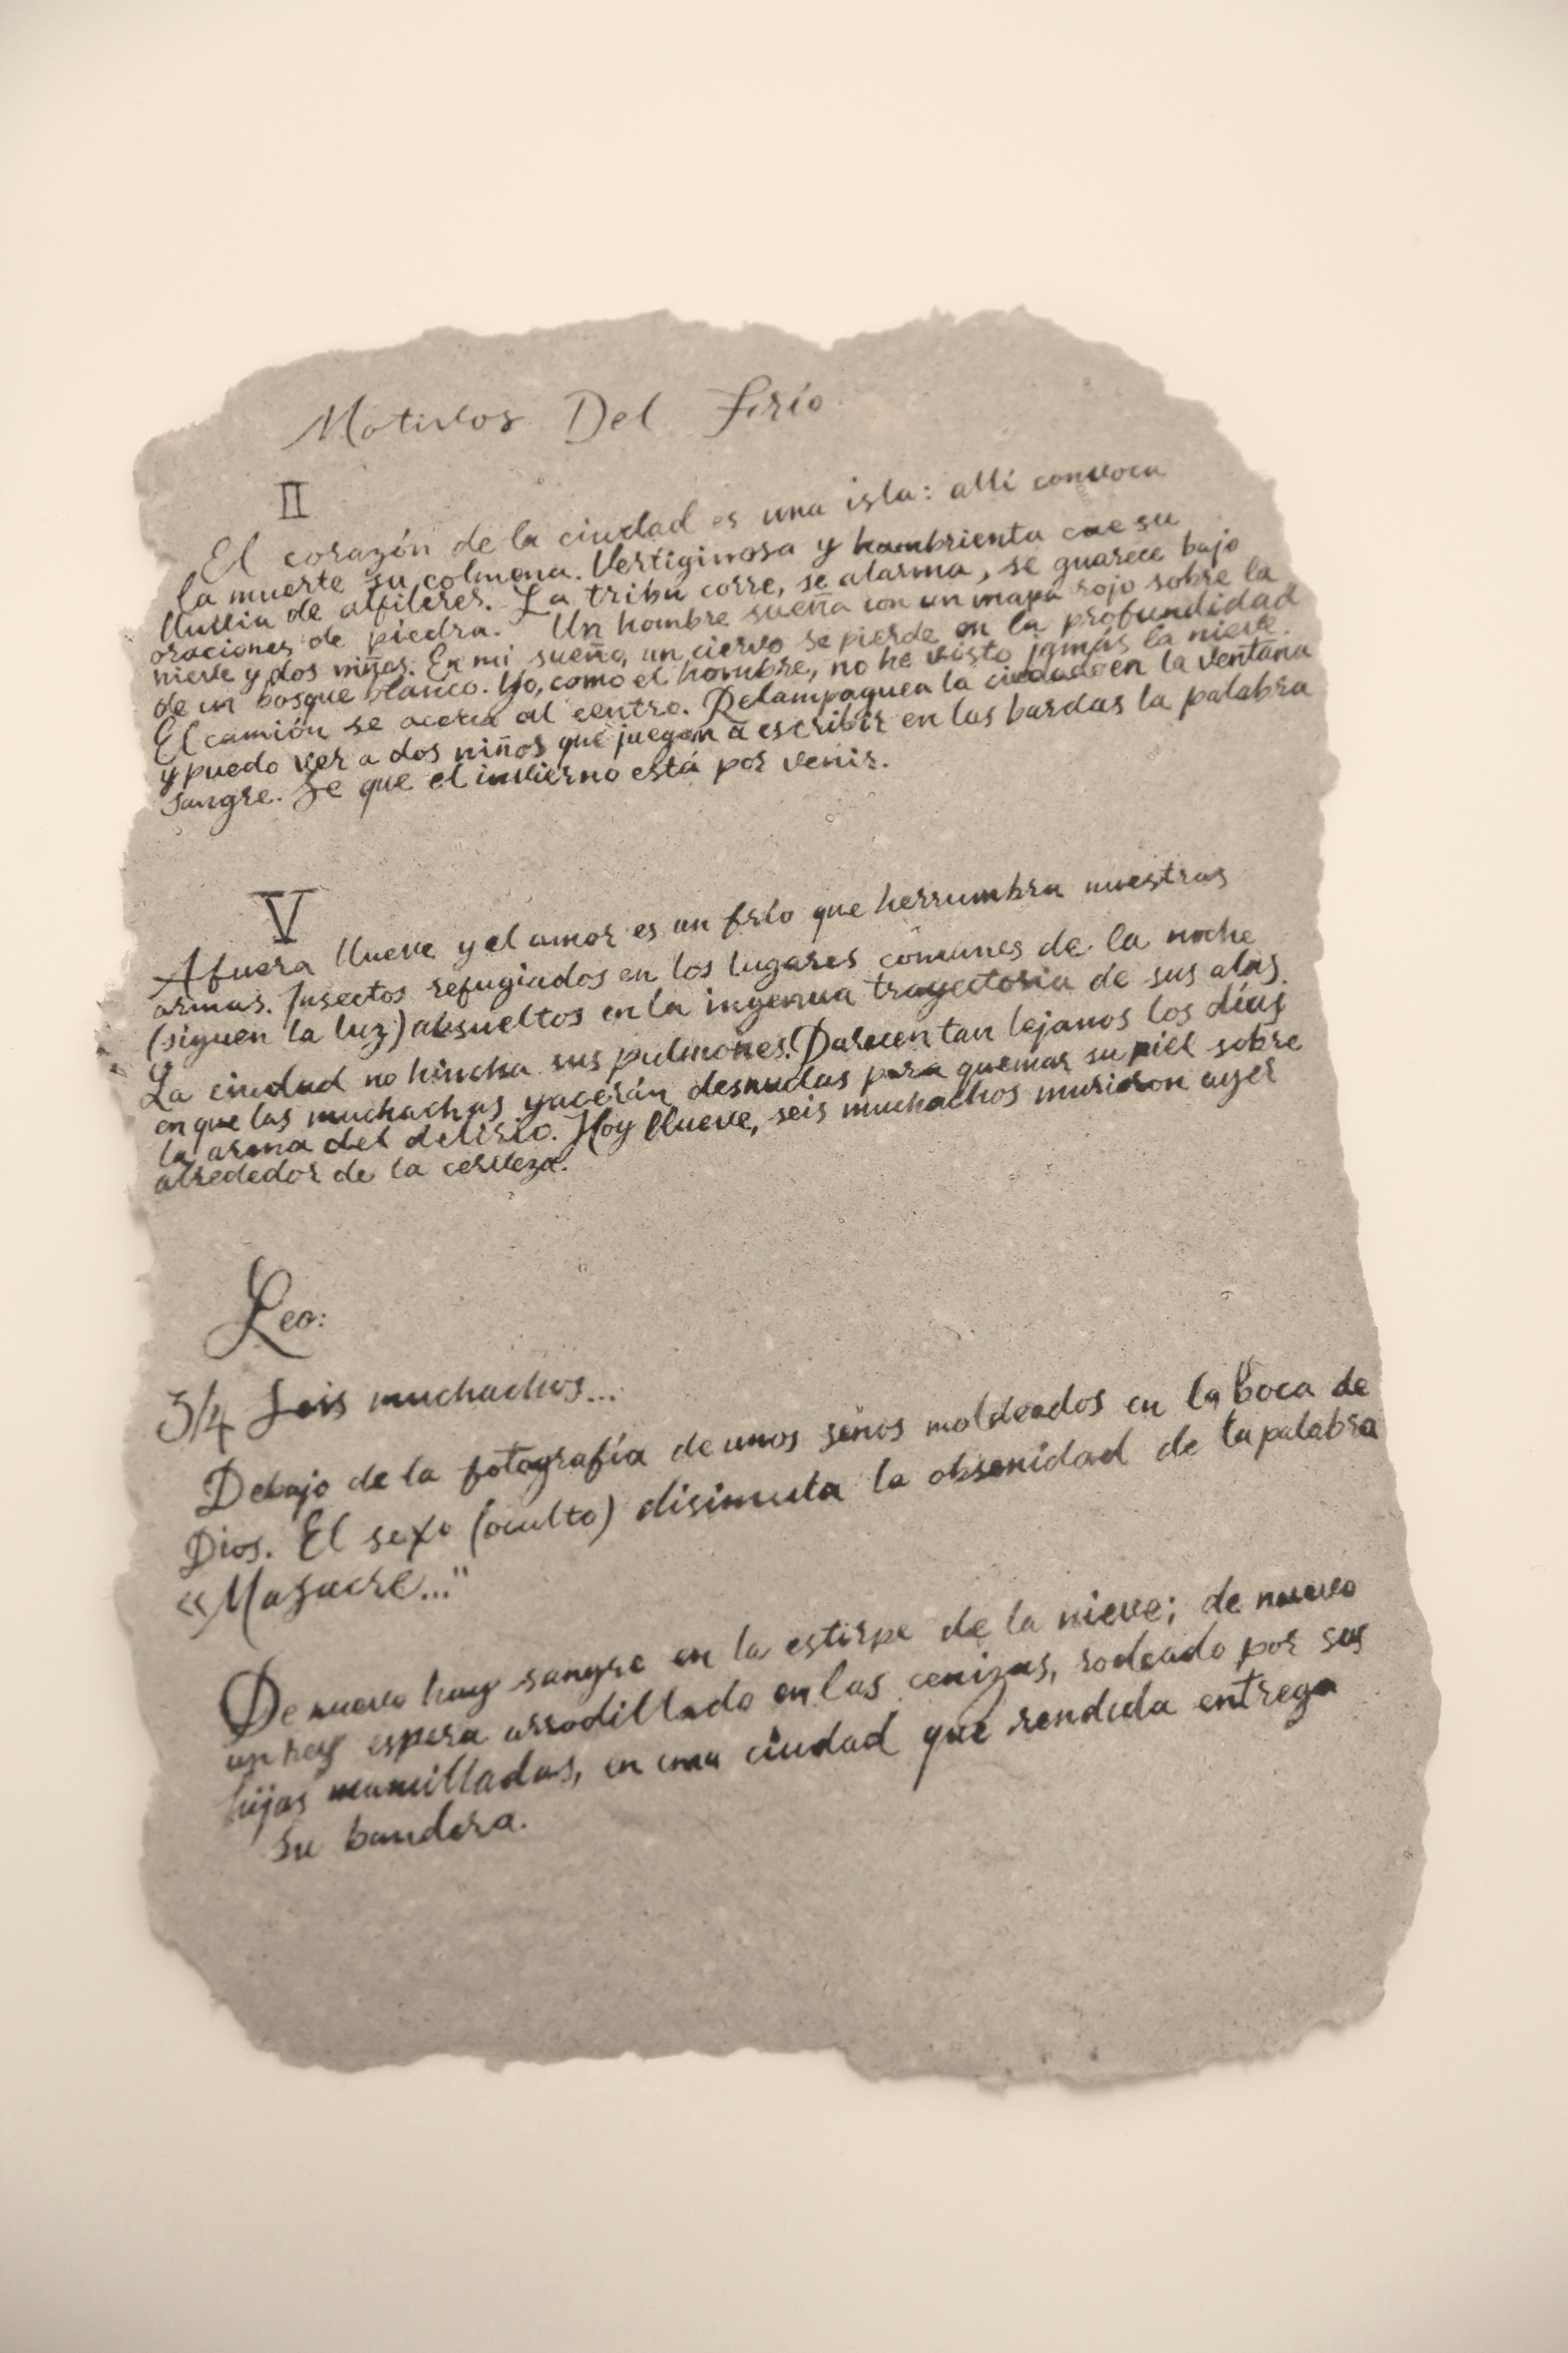 Motivos Del frío
II
El corazón de la ciudad es una isla: allí convoca
la muerte su colmena. Vertiginosa y hambrienta cae su
lluvia de alfileres. La tribu corre, se alarma, se guarece bajo
oraciones de piedra. Un hombre sueña con un mapa rojo sobre la
nieve y dos niños. En mi sueño, un ciervo se pierde en la profundidad
de un bosque blanco. Yo, como el hombre, no he visto jamás la nieve.
El camión se acerca al centro. Relampaguea la ciudad en la ventana
y puedo ver a dos niños que juegan a escribir en las bardas la palabra
sangre. Se que el invierno está por venir.
V
Afuera llueve y el amor es un frío que herrumbra nuestras
armas. Insectos refugiados en los lugares comunes de la noche
(siguen la luz) absueltos en la ingenua trayectoria de sus alas.
La ciudad no hincha sus pulmones. Parecen tan lejanos los días
en que las muchachas yacerán desnudas para quemar su piel sobre
la arena del delirio. Hoy llueve, seis muchachos murieron ayer
alrededor de la cerveza.
Leo:
3/4 Seis muchachos...
Debajo de la fotografía de unos senos moldeados en la boca de
Dios. El sexo (oculto) disimula la obsenidad de la palabra
«Masacre..."
De nuevo hay sangre en la estirpe de la nieve; de nuevo
un rey espera arrodillado en las cenizas, rodeado por sus
hijas mancilladas, en una ciudad que rendida entrega
su bandera.